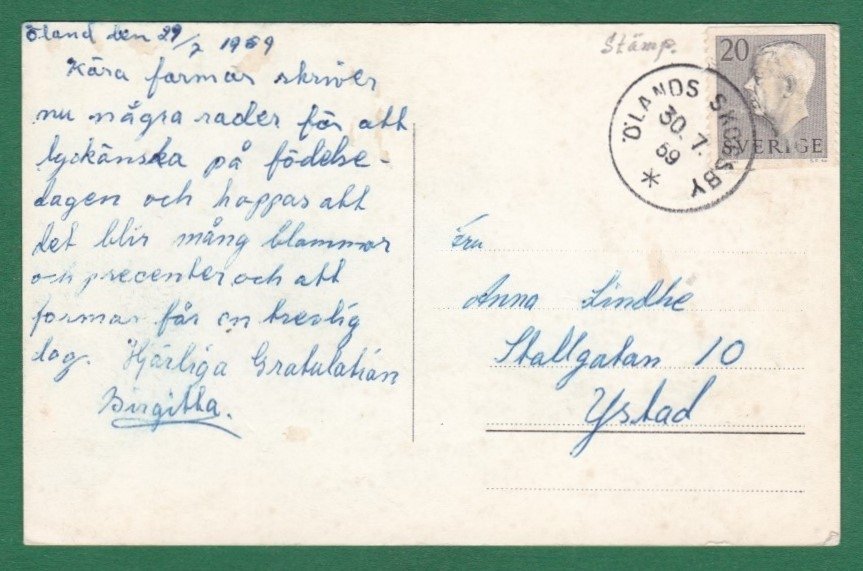 Öland den 29/7 1959
Kära farmor skriver
nu några rader för att
lyckänska på födelse-
dagen och hoppas att
det blir mång blommor
och precenter och att
farmor får en trevlig
dag. Hjärliga Gratulatián
Birgitta.
Stämp.
20
SVERIGE
ÖLANDS SKOGSBY
30.7.
59
Fru
Anna Lindhe
Stallgatan 10
Ystad